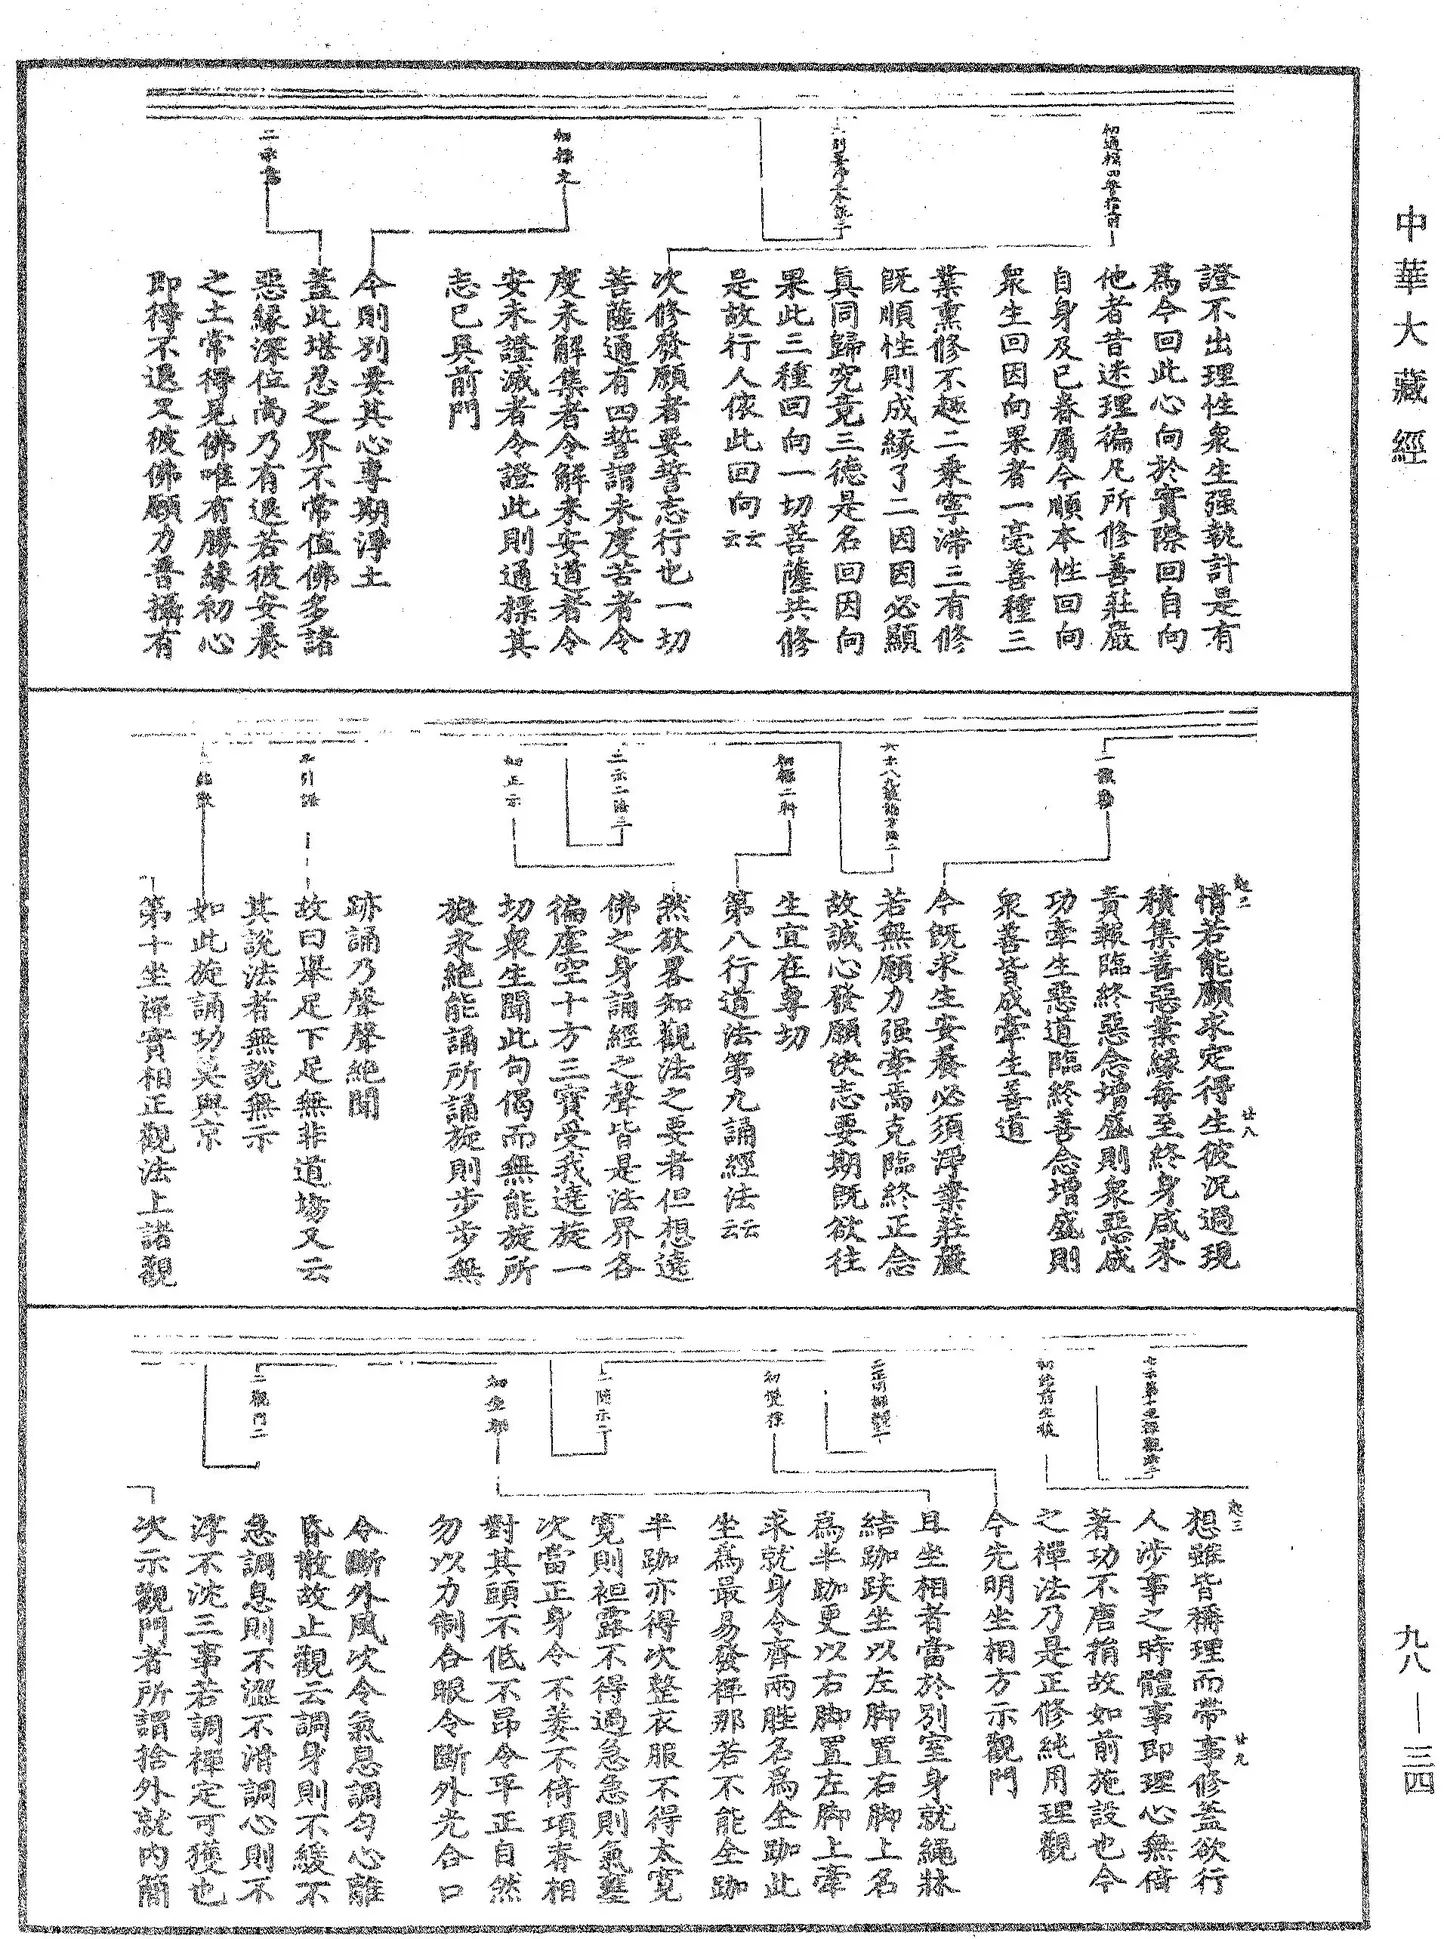 中華大藏經
初通標四誓指前
初標文
二示意
證不出理性衆生强執計是有
爲今回此心向於實際回自向
他者昔迷理徧凡所修善莊嚴
自身及已眷屬今順本性回向
衆生回因向果者一毫善種三
業熏修不趣二乘寧滯三有修
既順性則成緣了二因因必顯
眞同歸究竟三德是名回因向
果此三種回向一切菩薩共修
是故行人依此回向云云
次修發願者要誓志行也一切
菩薩通有四誓謂未度苦者令
度未解集者令解未安道者令
安未證滅者令證此則通標其
志已具前門
今則別要其心專期淨土
蓋此堪忍之界不常值佛多諸
惡緣深位高乃有退若彼安養
之土常得見佛唯有勝緣初心
即得不退又彼佛願力普攝有
初標二科
二示二法二
初正示
二引證
情若能願求定得生彼況過現
積集善惡業緣每至終身咸來
責報臨終惡念增盛則衆惡成
功牽生惡道臨終善念增盛則
衆善皆成牽生善道
今既求生安養必須淨業莊嚴
若無願力强牽焉克臨終正念
故誠心發願決志要期既欲往
生宜在專切
第八行道法第九誦經法云云
然欲畧知觀法之要者但想遶
佛之身誦經之聲皆是法界各
徧虛空十方三寶受我遶旋一
切衆生聞此句偈而無能旋所
旋永絶能誦所誦旋則步步無
跡誦乃聲聲絶聞
故曰舉足下足無非道場又云
其說法者無說無示
如此旋誦功莫與京
第十坐禪實相正觀法上諸觀
七示第十坐禪觀法二
二正明禪觀二
初雙標
二開示二
初坐相
二觀門二
想雖皆稱理而帶事修蓋欲行
人涉事之時體事即理心無倚
著功不唐捐故如前施設也今
之禪法乃是正修純用理觀
今先明坐相方示觀門
且坐相者當於別室身就繩牀
結跏趺坐以左脚置右脚上名
爲半跏更以右脚置左脚上牽
求就身令齊兩䏶名爲全跏此
坐爲最易發禪那若不能全跏
半跏亦得次整衣服不得太寬
寬則袒露不得過急急則氣壅
次當正身令不萎不倚項脊相
對其頭不低不昂令平正自然
勿以力制合眼令斷外光合口
令斷外風次令氣息調勻心離
昏散故止觀云調身則不緩不
急調息則不澀不滑調心則不
浮不沈三事若調禪定可獲也
次示觀門者所謂捨外就內簡
九八—三四